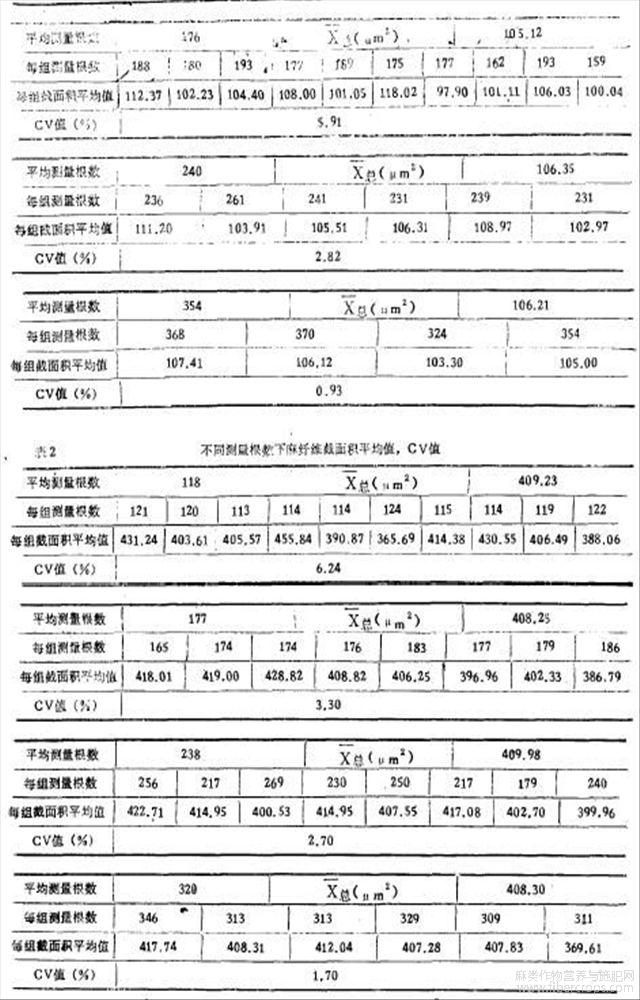 平均测量根数 176 X总(μm²) 105.12
每组测量根数 188 180 193 177 189 175 177 162 193 159
每组截面积平均值 112.37 102.23 104.40 108.00 101.05 118.02 97.90 101.11 106.03 100.04
CV值(%) 5.91
平均测量根数 240 X总(μm²) 106.35
每组测量根数 236 261 241 231 239 231
每组截面积平均值 111.20 103.91 105.51 106.31 108.97 102.97
CV值(%) 2.82
平均测量根数 354 X总(μm²) 106.21
每组测量根数 368 370 324 354
每组截面积平均值 107.41 106.12 103.30 105.00
CV值(%) 0.93
表2 不同测量根数下麻纤维截面积平均值,CV值
平均测量根数 118 X总(μm²) 409.23
每组测量根数 121 120 113 114 114 124 115 114 119 122
每组截面积平均值 431.24 403.61 405.57 455.84 390.87 365.69 414.38 430.55 406.49 388.06
CV值(%) 6.24
平均测量根数 177 X总(μm²) 408.25
每组测量根数 165 174 174 176 183 177 179 186
每组截面积平均值 418.01 419.00 428.82 408.82 406.25 396.96 402.33 386.79
CV值(%) 3.30
平均测量根数 238 X总(μm²) 409.98
每组测量根数 256 217 269 230 250 217 179 240
每组截面积平均值 422.71 414.95 400.53 414.95 407.55 417.08 402.70 399.96
CV值(%) 2.70
平均测量根数 320 X总(μm²) 408.30
每组测量根数 346 313 313 329 309 311
每组截面积平均值 417.74 408.31 412.04 407.28 407.83 369.61
CV值(%) 1.70
麻类作物营养与施肥网
www.fibercrops.com